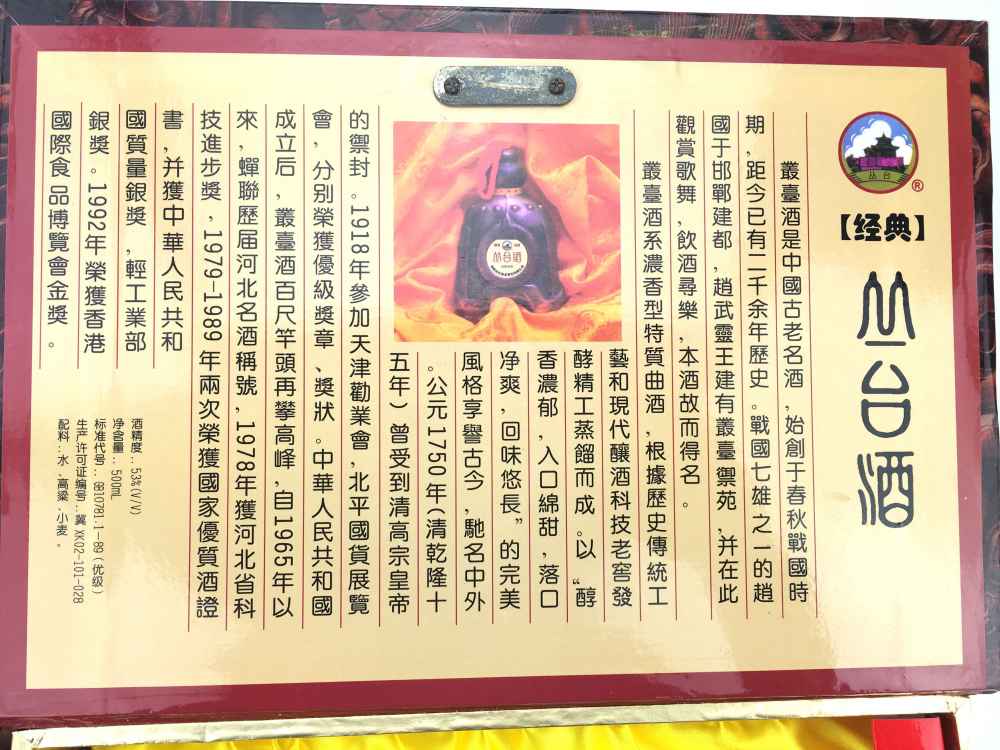 丛台
®
【经典】
丛台酒
叢臺酒是中國古老名酒,始創于春秋戰國時
期,距今已有二千余年歷史。戰國七雄之一的趙
國于邯鄲建都,趙武靈王建有叢臺禦苑,并在此
觀賞歌舞,飲酒尋樂,本酒故而得名。
叢臺酒系濃香型特質曲酒,根據歷史傳統工
藝和現代釀酒科技老窖發
酵精工蒸餾而成。以“醇
香濃郁,入口綿甜,落口
净爽,回味悠長”的完美
風格享譽古今,馳名中外
。公元1750年(清乾隆十
五年)曾受到清高宗皇帝
的禦封。1918年參加天津勸業會,北平國貨展覽
會,分别榮獲優級獎章、獎狀。中華人民共和國
成立后,叢臺酒百尺竿頭再攀高峰,自1965年以
來,蟬聯歷届河北名酒稱號,1978年獲河北省科
技進步獎,1979-1989年兩次榮獲國家優質酒證
書,并獲中華人民共和
國質量銀獎,輕工業部
銀獎。1992年榮獲香港
國際食品博覽會金獎。
丛台酒
酒精度:53%(V/V)
净含量:500mL
标准代号:GB10781.1-89(优级)
生产许可证编号:冀XK02-101-028
配料:水、高粱、小麦。